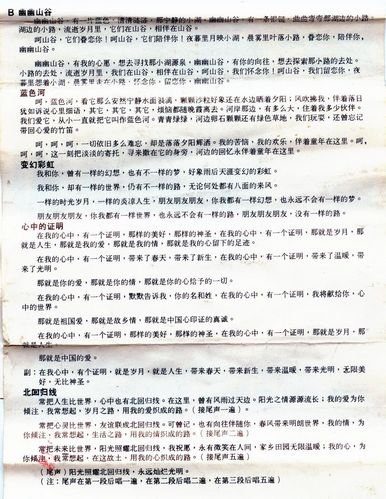 B 幽幽山谷
幽幽山谷,有一片蓝色
湖边的小路,流逝岁月里,它们在山谷,相伴在山谷。
呵山谷,它们眷恋你!呵山谷,它们陪伴你!夜幕里月映小湖,晨雾里叶落小路,眷恋你,陪伴你,
幽幽山谷。
幽幽山谷,有我的心愿,想去寻找那小湖源泉,幽幽山谷,有你的向往,想去探索那小路的去处。
小路的去处,流逝岁月里,我们在山谷,相伴在山谷,呵山谷,我们怀念你!呵山谷,我们留恋你,夜
幕里想着小湖,
蓝色河
呵,蓝色河,看它那么安然宁静水面浪满,颗颗沙粒好象还在水边晒着夕阳;风吹拂我,伴着落日
犹如诉说心里细语,其它,其它,其它,烦恼都随晚霞离去。河岸那边,有多么大,住着我多少伙伴。
我们爱它,从小一直就把它叫作蓝色河。青青绿绿,河边卵石颗颗还有绿色草地,我们玩耍,还曾忘记
带回心爱的竹笛。
呵,呵,呵,一切依旧多么难忘,却是落落夕阳辉洒。我的苦恼,我的欢乐,伴着童年在这里。呵,
呵,呵,这一刻把淡淡的寄托,寻来撒在它的身旁,河边的回忆永伴着童年在这里。
变幻彩虹
我和你,曾有一样的幻想,也有不一样的梦,好象雨后天涯变幻的彩虹。
我和你,却有一样的世界,仍有不一样的路,无论何处都有八面的来风。
一样的时光岁月,一样的炎凉人生,朋友朋友朋友,你我都有一样幻想,也永远不会有一样的梦。
朋友朋友朋友,你我都有一样世界,也永远不会有一样的路,朋友朋友朋友,没有一样的路。
心中的证明
在我的心中,有一个证明,那样的美好,那样的神圣,在我的心中,有一个证明,那就是岁月,那
就是人生,那就是我的爱,那就是我的情,那就是我的心留下的足迹。
在我的心中,有一个证明,带来了春天,带来了新生,在我的心中,有一个证明,带来了温暖,带
来了光明。
那就是你的爱,那就是你的情,那就是你的心给予的一切。
在我的心中,有一个证明,默默告诉我,你的名和姓,在我的心中,有一个证明,我将献给你,心
中的世界。
那就是祖国爱,那就是故乡情,那就是中国心印证的真诚。
在我的心中,有一个证明,那样的美好,那样的神圣,在我的心中,有一个证明,那就是岁月,那
就是人生
那就是中国的爱。
副:在我心中,有个证明,就是岁月,就是人生,带来春天,带来新生,带来温暖,带来光明,无限美
好,无比神圣。
北回归线
常把人生比世界,心中也有北回归线。在这里,曾有风雨过天边。阳光之情源源流长;我的爱为你
倾注,我常想起,岁月之路,用我的爱织成的路。(接尾声一遍)。
常把心灵比世界,友谊联成北回归线。可曾记,也有向往伴随你,春风带来明朗世界,我的情,为
你倾注,我常想起,生活之路,用我的情织成的路。(接尾声二遍)
常把未来比世界,阳光照耀北回归线,我祝愿,永有微笑在人间,家乡田园无限温暖;我的心,为
你倾注,我常想起,在这故土,用我的心织成的路。(接尾声五遍)
(尾声)阳光照耀北回归线,永远灿烂光明。
(注:尾声在第一段后唱一遍,在第二段后唱二遍,在第三段后唱五遍)